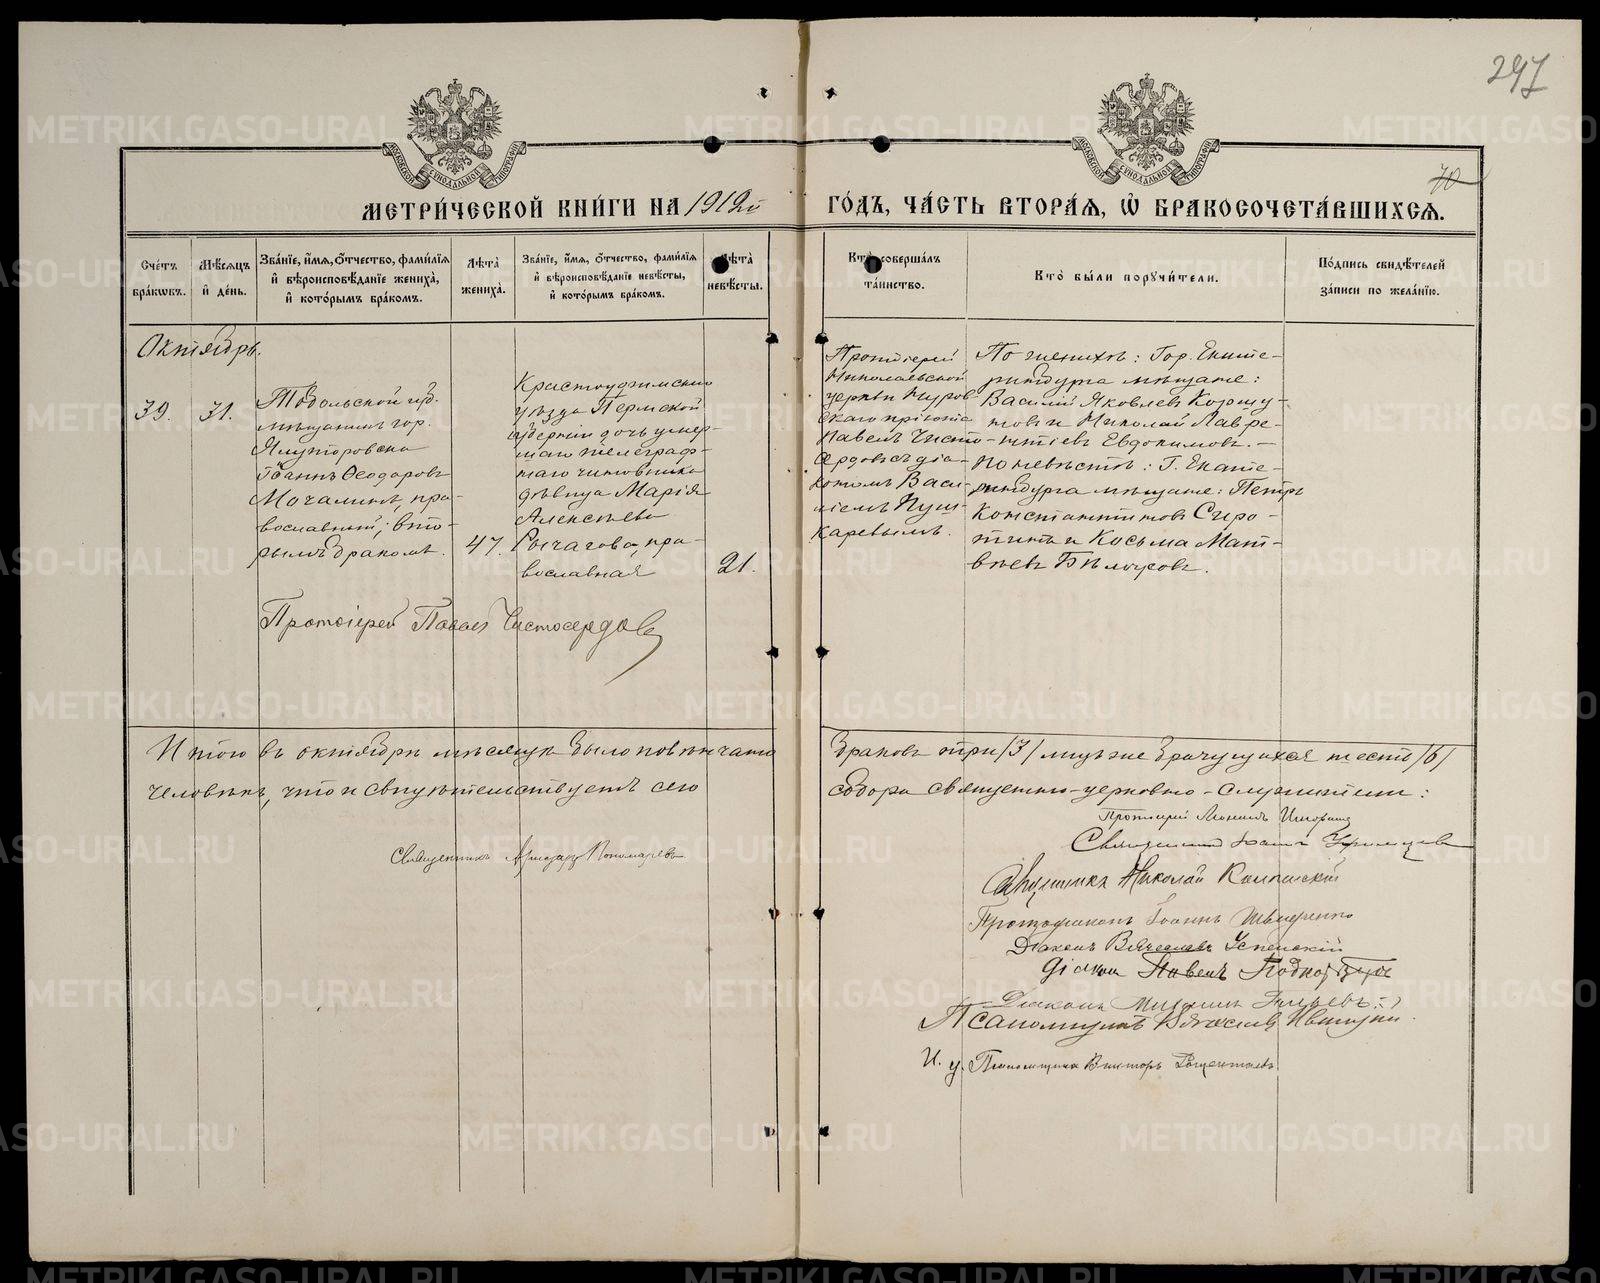 297
70
МЕТРИ́ЧЕСКОЙ КНИ́ГИ НА 1912й ГО́ДЪ, ЧА́СТЬ ВТОРА́Я, Ѡ БРАКОСОЧЕТА́ВШИХСЯ.
Сче́тъ бра́кѡвъ.
Мѣ́сяцъ и҆ де́нь.
Зва́нїе, и҆́мя, ѻ҆́тчество, фами́лїя и҆ вѣроисповѣ́данїе жениха̀, и҆ кото́рымъ бра́комъ.
Лѣ́та жениха̀.
Зва́нїе, и҆́мя, ѻ҆́тчество, фами́лїя и҆ вѣроисповѣ́данїе невѣ́сты, и҆ кото́рымъ бра́комъ.
Лѣ́та невѣ́сты.
Кто̀ соверша́лъ та́инство.
Кто̀ бы́ли порꙋчи́тели.
По́дпись свидѣ́телей за́писи по жела́нїю.
Октябрь.
39.
31.
Тобольской губ.
мѣщанинъ гор.
Ялуторовска
Іоаннъ Ѳеодоровъ
Мочалинъ, пра-
вославный; вто-
рымъ бракомъ.
47.
Красноуфимскаго
уѣзда Пермской
губерніи дочь умер-
шаго телеграф-
наго чиновника
дѣвица Марія
Алексѣева
Рычагова, пра-
вославная
21.
Протоіерей
Николаевской
церкви Нуров-
скаго пріюта
Павелъ Чисто-
сердовъ съ діа-
кономъ Васи-
ліемъ Пуш-
каревымъ.
По женихѣ: Гор. Екате-
ринбурга мѣщане:
Василій Яковлевъ
и Николай Лавре-
нтіевъ Евдокимовъ.
По невѣстѣ: Г. Екате-
ринбурга мѣщане: Петръ
Константиновъ Сыро-
тинъ и Косьма Мат-
вѣевъ Бѣлоусовъ.
Протоіерей Павелъ Чистосердовъ
Итого въ октябрѣ мѣсяцѣ было повѣнчано браковъ три /3/ лицъ же брачущихся шесть /6/
человѣкъ, что и свидѣтельствуетъ сего собора священно-церковно-служители:
Протоіерей
Священникъ Пономаревъ
Священникъ
Николай
Протодіаконъ Іоаннъ
Діаконъ Вячеславъ Успенскій
Діаконъ Павелъ
Діаконъ
Псаломщикъ
И. у. Псаломщика Викторъ
METRIKI.GASO-URAL.RU